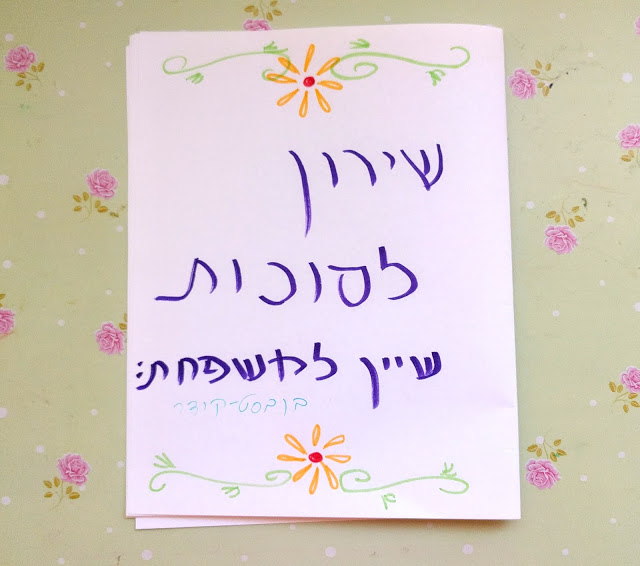 שירון
לסוכות
שייך למשפחת:
בן בסט-קידר